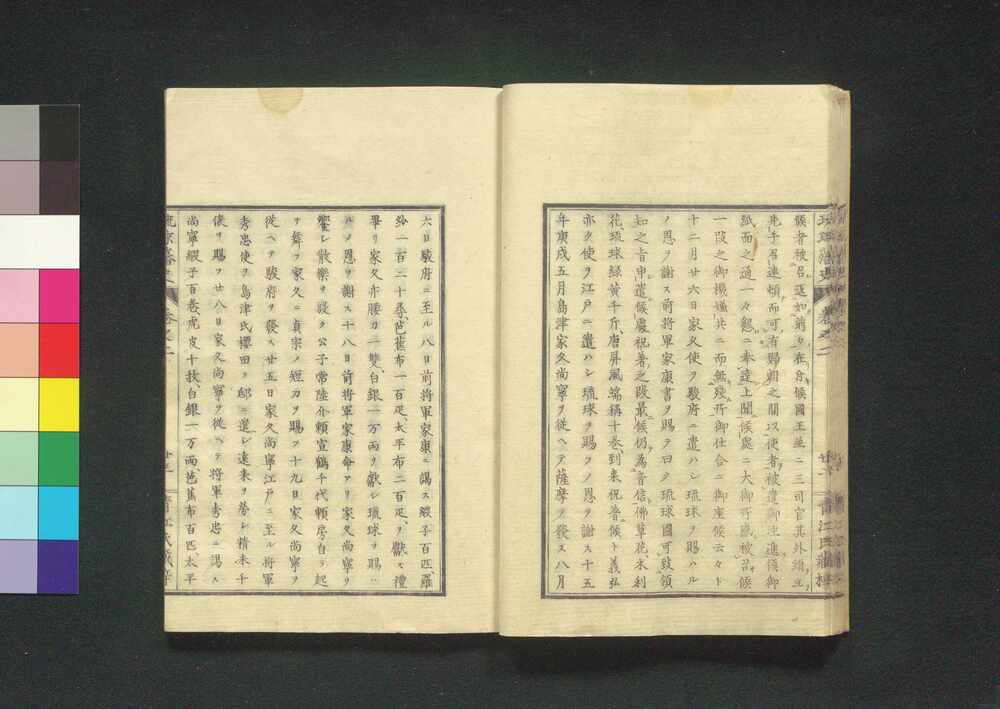 候者被召延如前々在府候國王並ニ三司官其外諸士
先手君連頓而可有歸朝之間以使者被遣御主進候御
紙面之通一々懇ニ奉達上聞候處ニ大御所被召候
一段之御機嫌共ニ而無殘所御仕合ニ御座候云々ト
十二月廿六日家久使ヲ駿府ニ遣ハシ琉球ヲ賜ハル
ノ恩ヲ謝ス前將軍家康書ヲ賜フ曰ク琉球國可致領
知之旨申遣候處祝著之段最候仍為音信佛草花米利
花琉球緑黄千斤唐屏風端柄十卷到来祝著候ト義弘
亦タ使ヲ江戸ニ遣ハシ琉球ヲ賜フノ恩ヲ謝ス十五
年庚戌五月島津家久尚寧ヲ從ヘテ薩摩ヲ發ス八月
六日駿府ニ至ル八日前將軍家康ニ謁ス緞子百匹羅
紗一百二十尋芭蕉布一百疋太平布二百疋ヲ獻ス禮
畢リ家久亦腰刀一雙白銀一万兩ヲ獻シ琉球ヲ賜ハ
ルノ恩ヲ謝ス十八日前將軍家康命アリ家久尚寧ヲ
饗シ散樂ヲ設ク公子常陸介頼宣鶴千代頼房自ラ起
ヲ舞フ家久ニ貞宗ノ短刀ヲ賜フ十九日家久尚寧ヲ
從ヘテ駿府ヲ發ス廿五日家久尚寧江戸ニ至ル將軍
秀忠使ヲ島津氏櫻田ノ邸ニ遣シ遠来ヲ勞シ精米千
俵ヲ賜フ廿八日家久尚寧ヲ從ヘテ將軍秀忠ニ謁ス
尚寧緞子百卷虎皮十枚白銀一万兩芭蕉布百匹太平